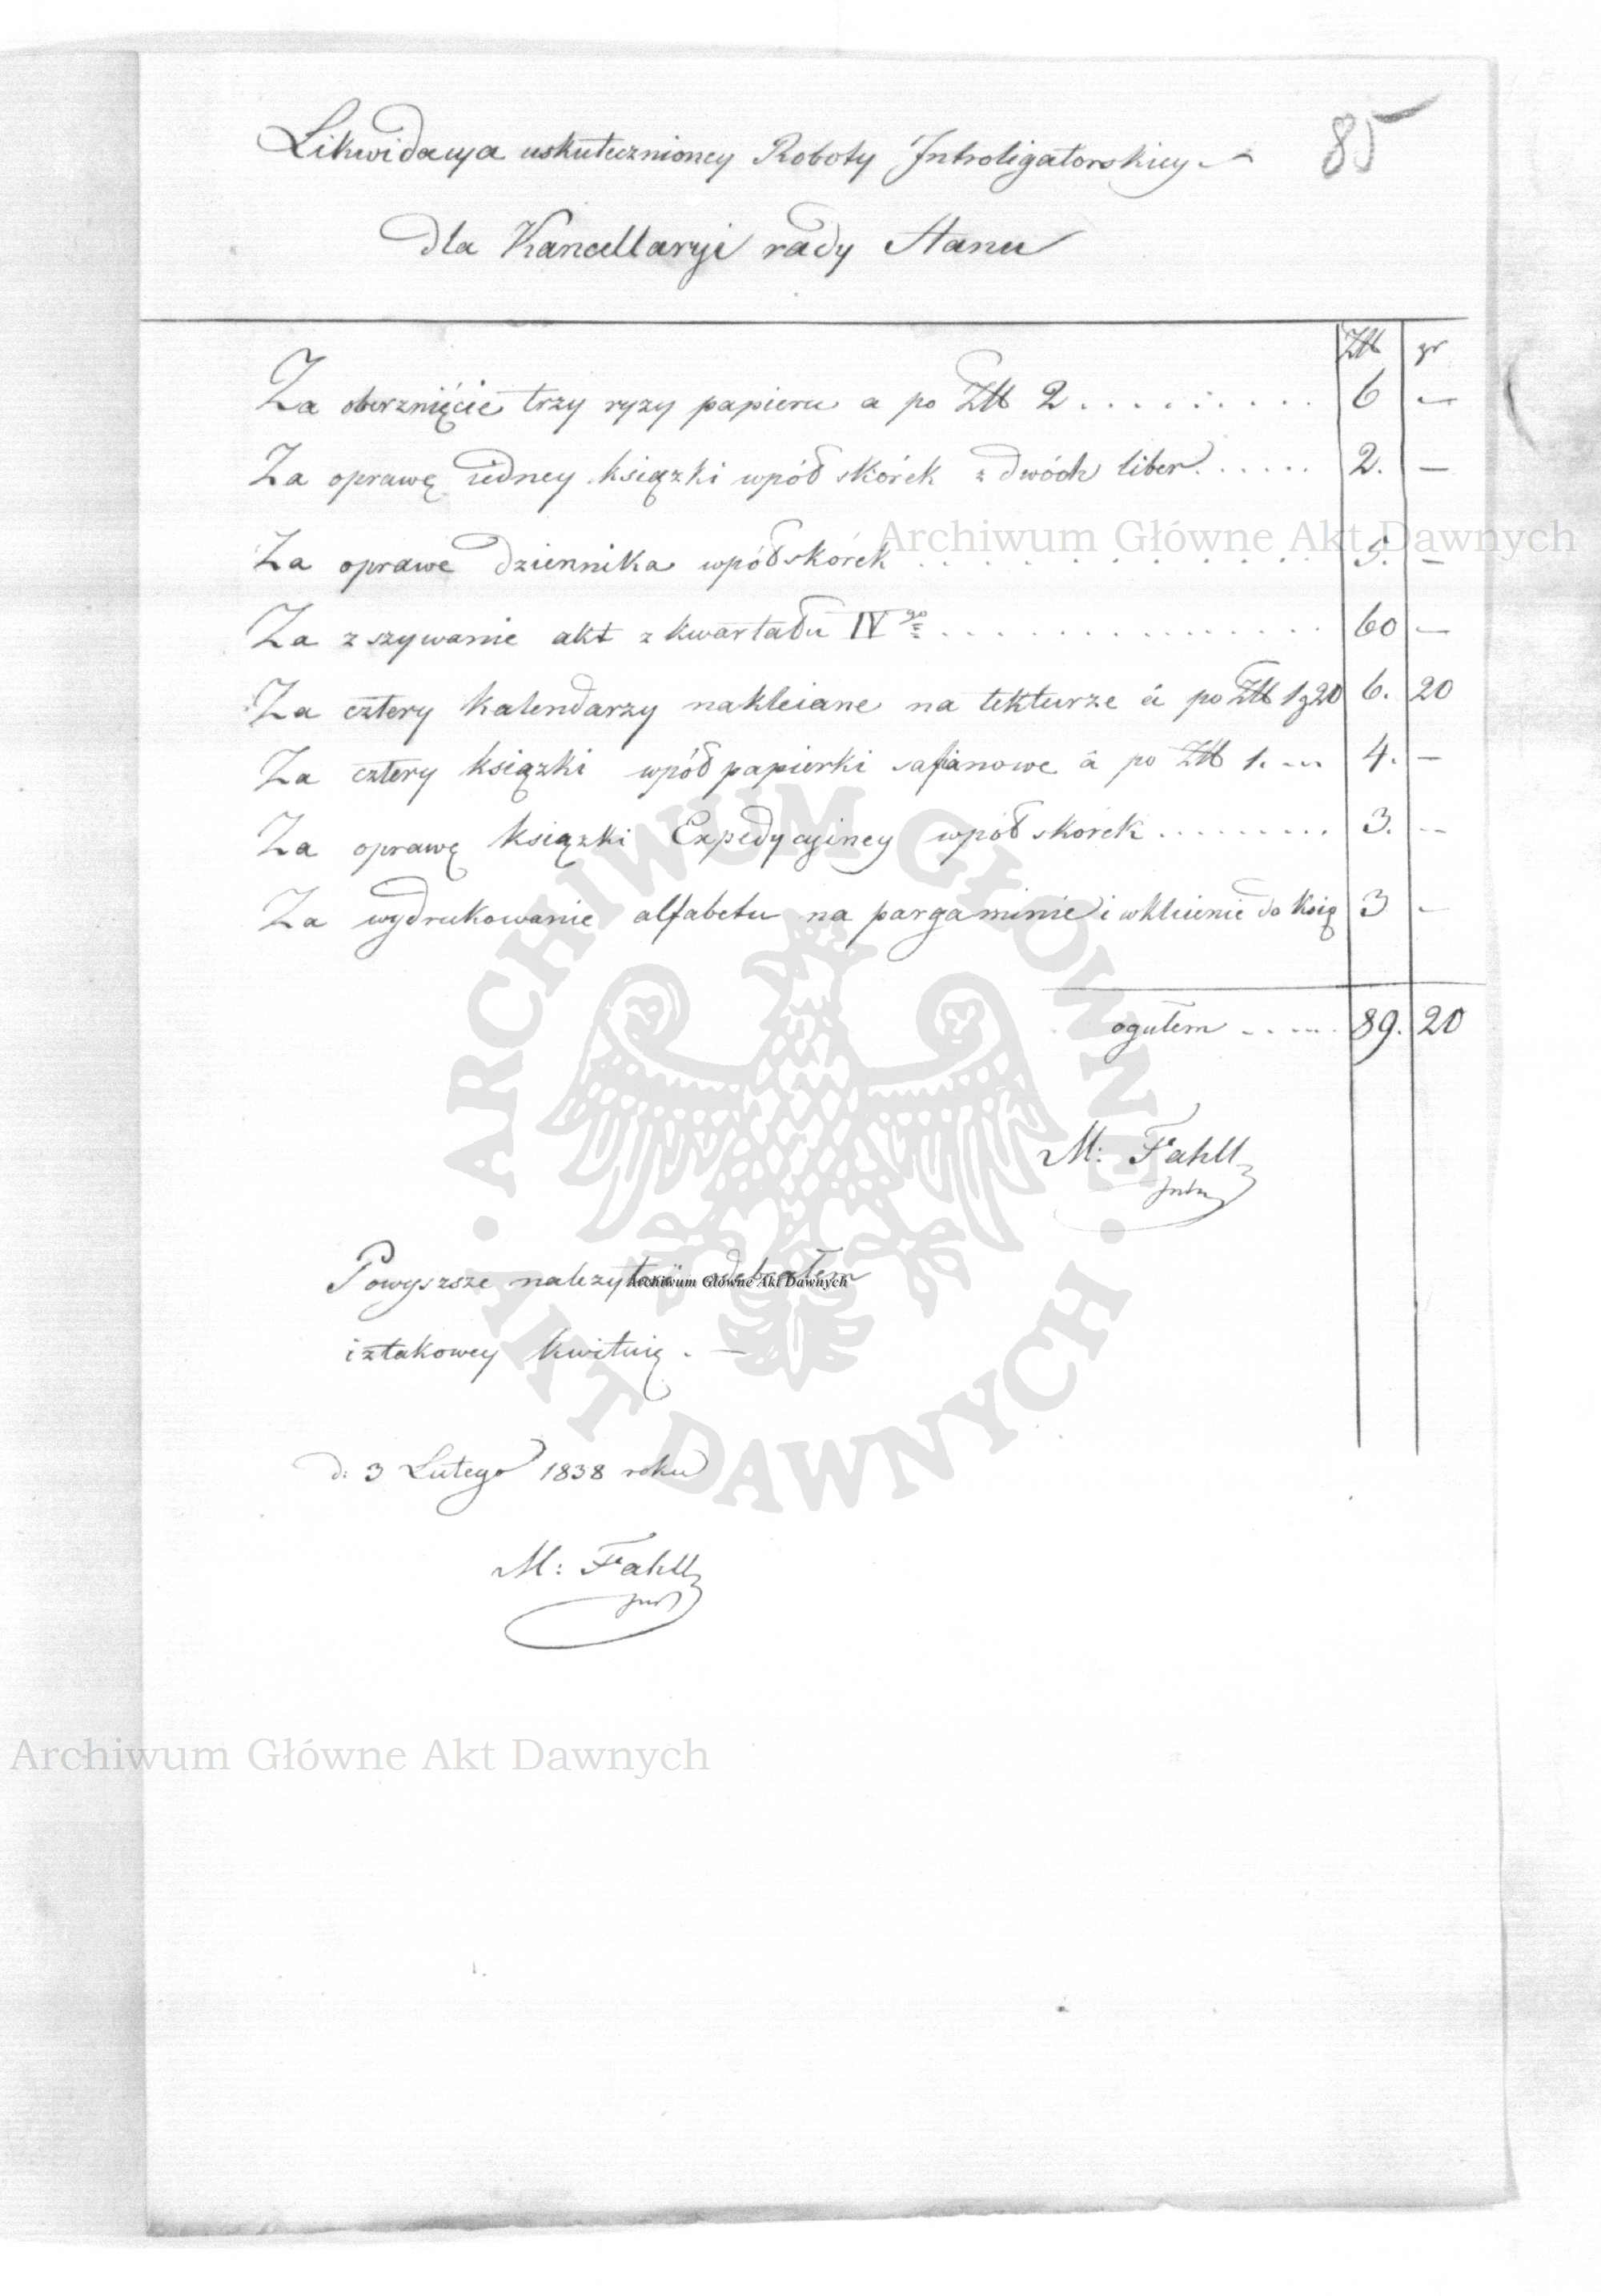 85
Likwidacya uskutecznioney Roboty Introligatorskiey
dla Kancellaryi rady Stanu
Złł gr
Za oberznięcie trzy ryzy papieru a po Złł 2 . . . . . . . . . 6 —
Za oprawę iedney książki wpół skórek z dwóch liber . . . . . 2. —
Za oprawe dziennika wpółskórek . . . . . . . . . . . 5. —
Za zszywanie akt z kwartału IVgo . . . . . . . . . . . . . . 60 —
Za cztery kalendarzy nakleiane na tekturze á po Złł 1 g 20 6. 20
Za cztery książki wpół papierki safianowe á po Złł 1. ... 4. —
Za oprawę książki Expedycyiney wpół skórek . . . . . . . . . 3. —
Za wydrukowanie alfabetu na pargaminie i wkleienie do Ksią 3 —
ogułem . . . . . 89. 20
M: Fahll
Intr
Powyszsze należytość odebrałem
iztakowey kwituię . —
d: 3 Lutego 1838 roku
M: Fahll
Archiwum Główne Akt Dawnych
Archiwum Główne Akt Dawnych
Archiwum Główne Akt Dawnych
· ARCHIWUM GŁÓWNE · AKT DAWNYCH